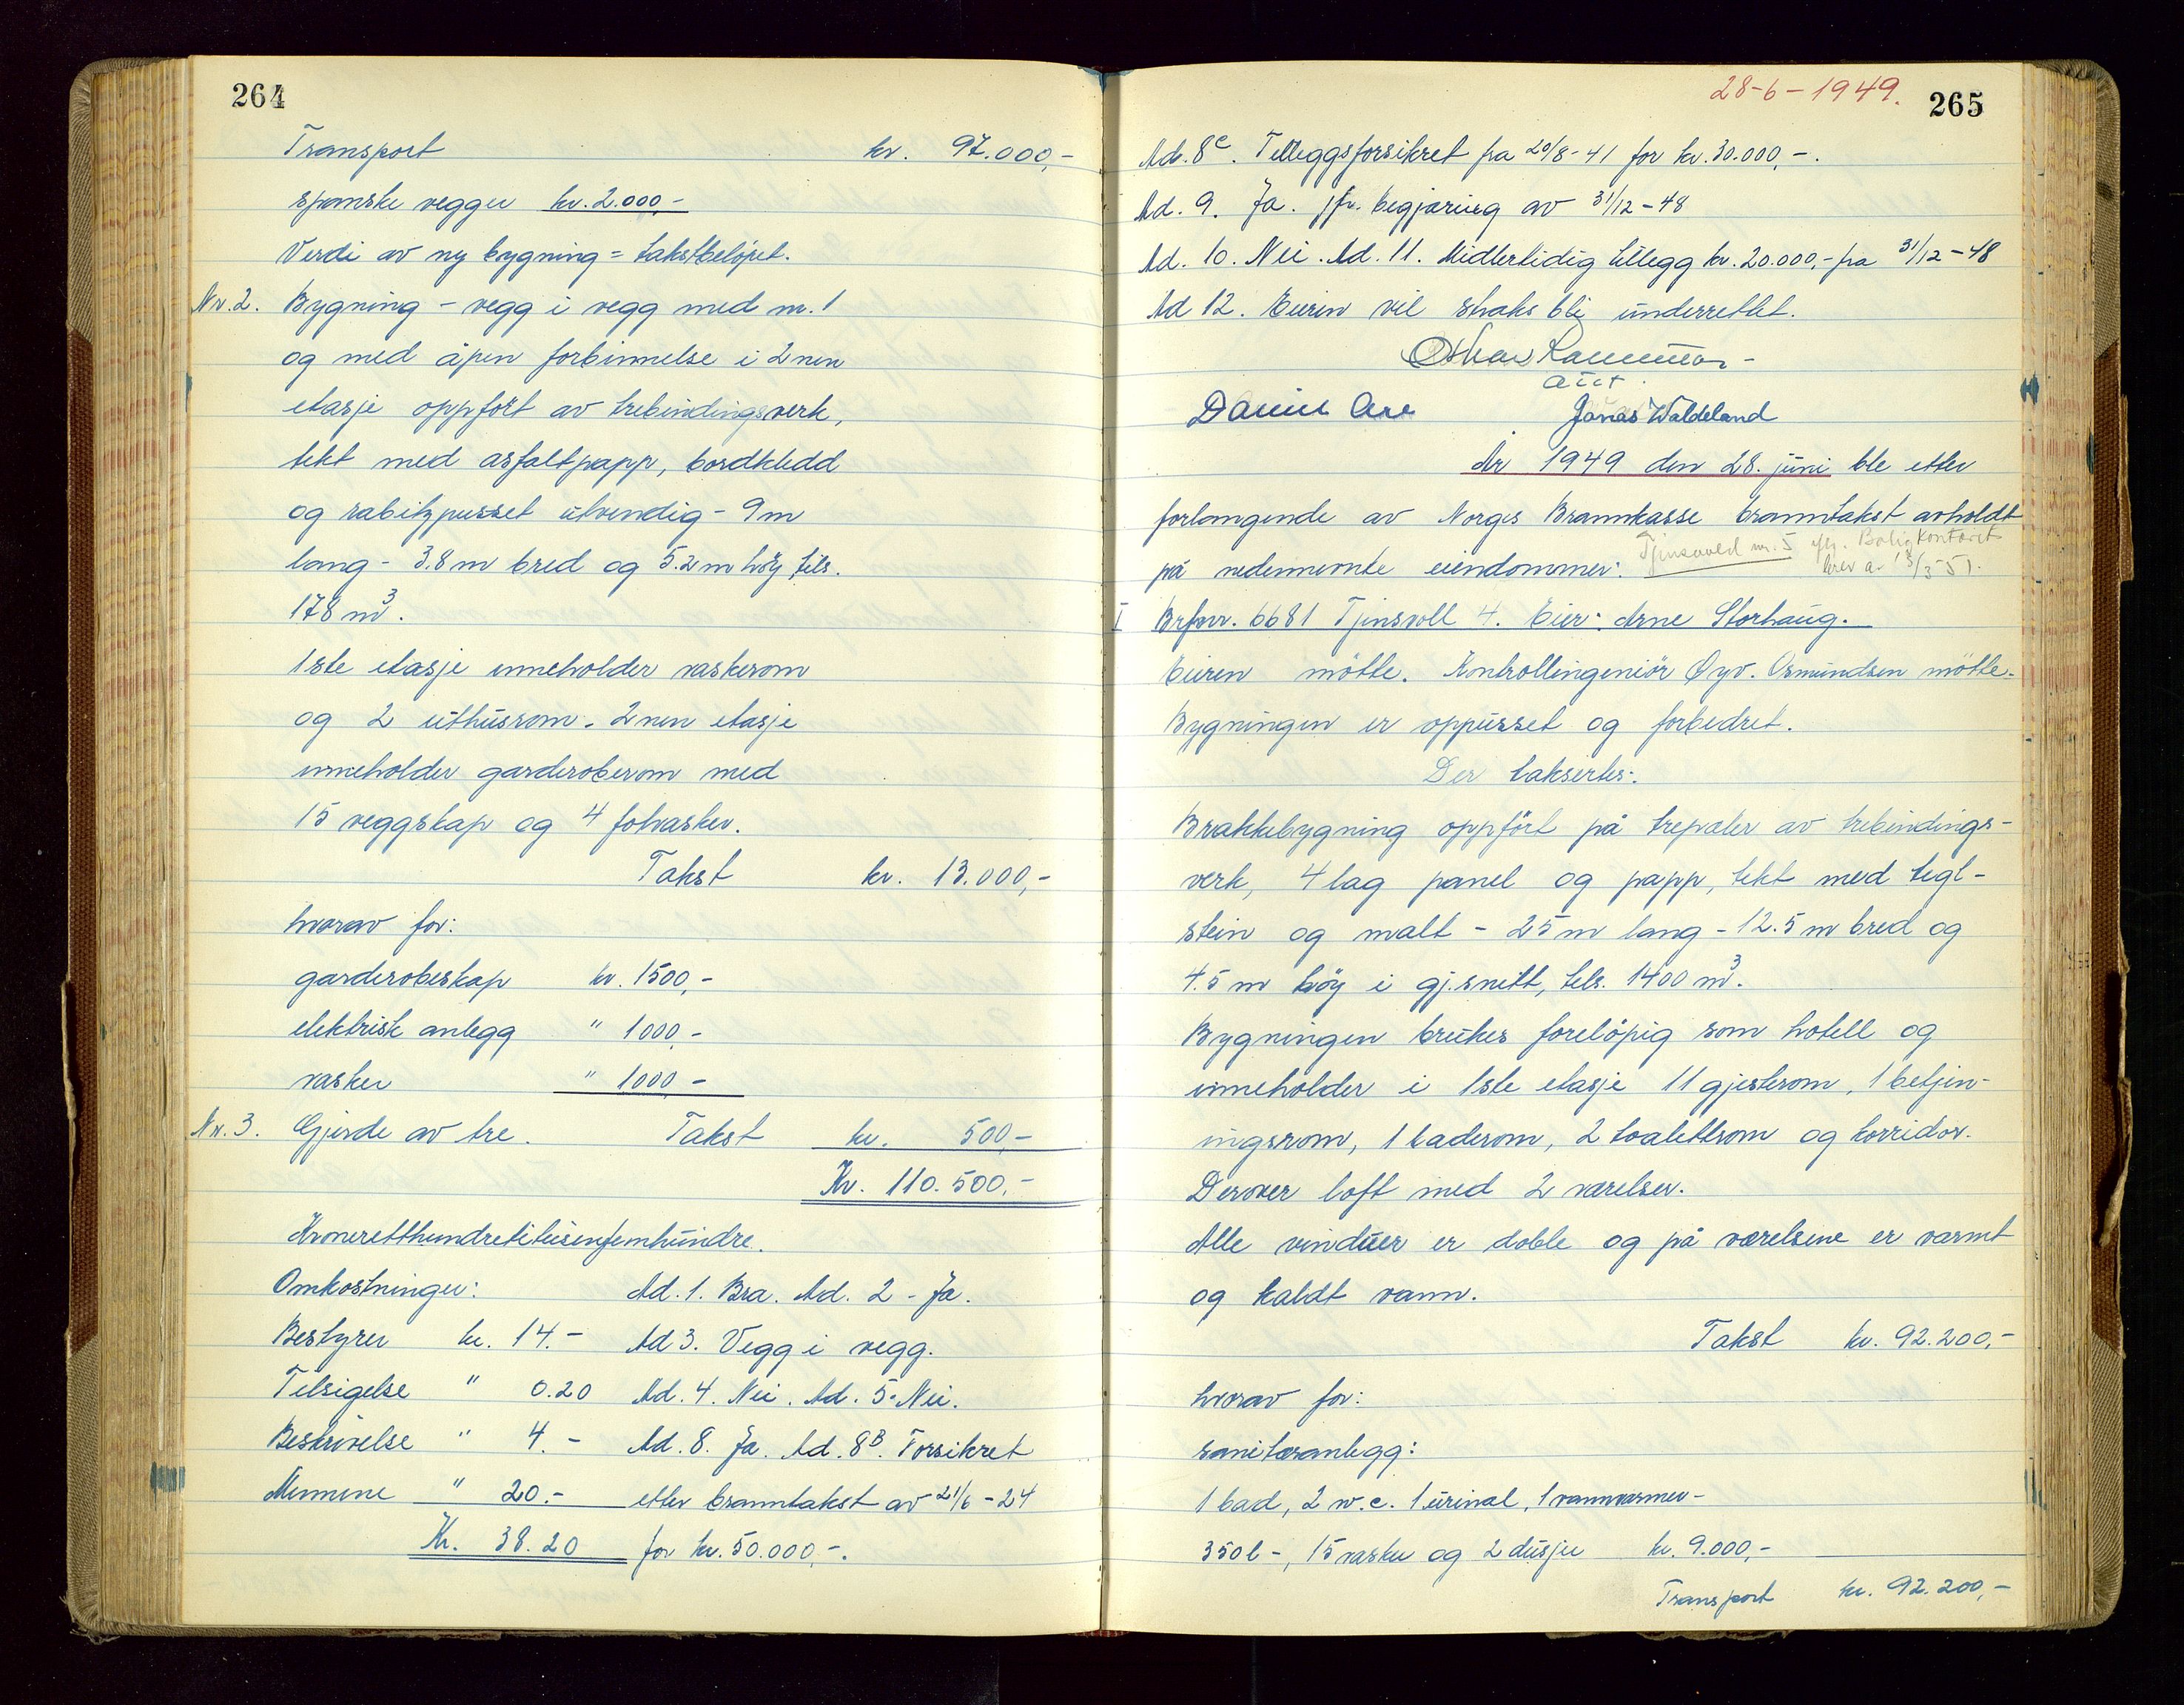 264
Transport kr. 97.000,-
spanske vegger kr. 2.000,-
Verdi av ny bygning = takstbeløpet.
Nr. 2. Bygning - vegg i vegg med nr. 1
og med åpen forbinnelse i 2nen
etasje oppført av trebindingsverk,
tekt med asfaltpapp, bordkledd
og rabitzpusset utvendig - 9 m
lang - 3.8 m bred og 5.2 m høy tils.
178 m³.
1ste etasje inneholder vaskerom
og 2 uthusrom. 2nen etasje
inneholder garderoberom med
15 veggskap og 4 fotvasker.
Takst kr. 13.000,-
hvorav for:
garderobeskap kr. 1500,-
elektrisk anlegg " 1000,-
vasker " 1000 -
Nr. 3. Gjerde av tre. Takst kr. 500,-
Kr. 110.500,-
Kroneretthundretitusenfemhundre.
Omkostninger: Ad. 1. Bra. Ad. 2 - Ja.
Bestyrer kr. 14.- Ad 3. Vegg i vegg.
Tilsigelse " 0.20 Ad. 4. Nei. Ad. 5. Nei.
Beskrivelse " 4.- Ad. 8. Ja. Ad. 8B. Forsikret
Mennene " 20.- etter branntakst av 21/6 - 24
Kr. 38.20 for kr. 50.000,-.
28-6-1949. 265
Ad. 8c. Tilleggsforsikret fra 20/8-41 for kr. 30.000,-.
Ad. 9. Ja. jfr. begjæring av 31/12-48
Ad. 10. Nei. Ad. 11. Midlertidig tillegg kr. 20.000,- fra 31/12-48
Ad 12. Eieren vil straks bli underrettet.
Jonas Waldeland
År 1949 den 28. juni ble etter
forlangende av Norges Brannkasse branntakst avholdt
på nedennevnte eiendommer: Tjinsvold nr. 5 iflg. Boligkontoret
brev a. 13/3-51.
I Brfnr. 6681 Tjinsvoll 4. Eier: Arne Storhaug.
Eieren møtte. Kontrollingeniør Øyv. Osmundsen møtte.
Bygningen er oppusset og forbedret.
Der takseres:
Brakkebygning oppført på trepæler av trebindings-
verk, 4 lag panel og papp, tekt med tegl-
stein og malt - 25 m lang - 12.5 m bred og
4.5 m høy i gj.snitt, tils. 1400 m³.
Bygningen brukes foreløpig som hotell og
inneholder i 1ste etasje 11 gjesterom, 1 betjen-
ingsrom, 1 baderom, 2 toalettrom og korridor.
Derover loft med 2 værelser.
Alle vinduer er doble og på værelsene er varmt
og kaldt vann.
Takst kr. 92.200,-
hvorav for:
sanitæranlegg:
1 bad, 2 w.c. 1 urinal, 1 vannvarmer-
350 l -, 15 vasker og 2 dusjer kr. 9.000,-
Transport kr. 92.200,-